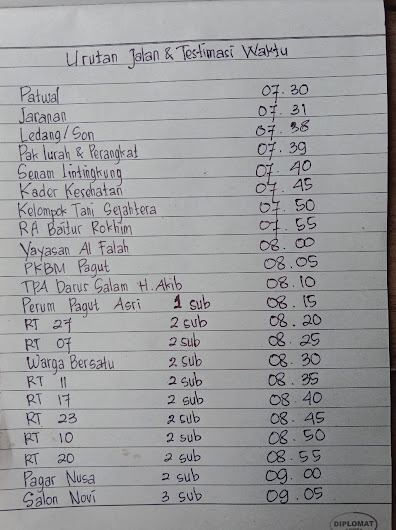 Urutan Jalan & Testimasi Waktu
Patwal 07.30
Jaranan 07.31
Ledang/Son 07.38
Pak lurah & Perangkat 07.39
Senam Lintingkung 07.40
Kader Kesehatan 07.45
Kelompok Tani Sejahtera 07.50
RA Baitur Rokhim 07.55
Yayasan Al Falah 08.00
PKBM Pagut 08.05
TPA Darus Salam H. Akib 08.10
Perum Pagut Asri 1 sub 08.15
RT 27 2 sub 08.20
RT 07 2 sub 08.25
Warga Bersatu 2 sub 08.30
RT 11 2 sub 08.35
RT 17 2 sub 08.40
RT 23 2 sub 08.45
RT 10 2 sub 08.50
RT 20 2 sub 08.55
Pagar Nusa 2 sub 09.00
Salon Novi 3 sub 09.05
DIPLOMAT